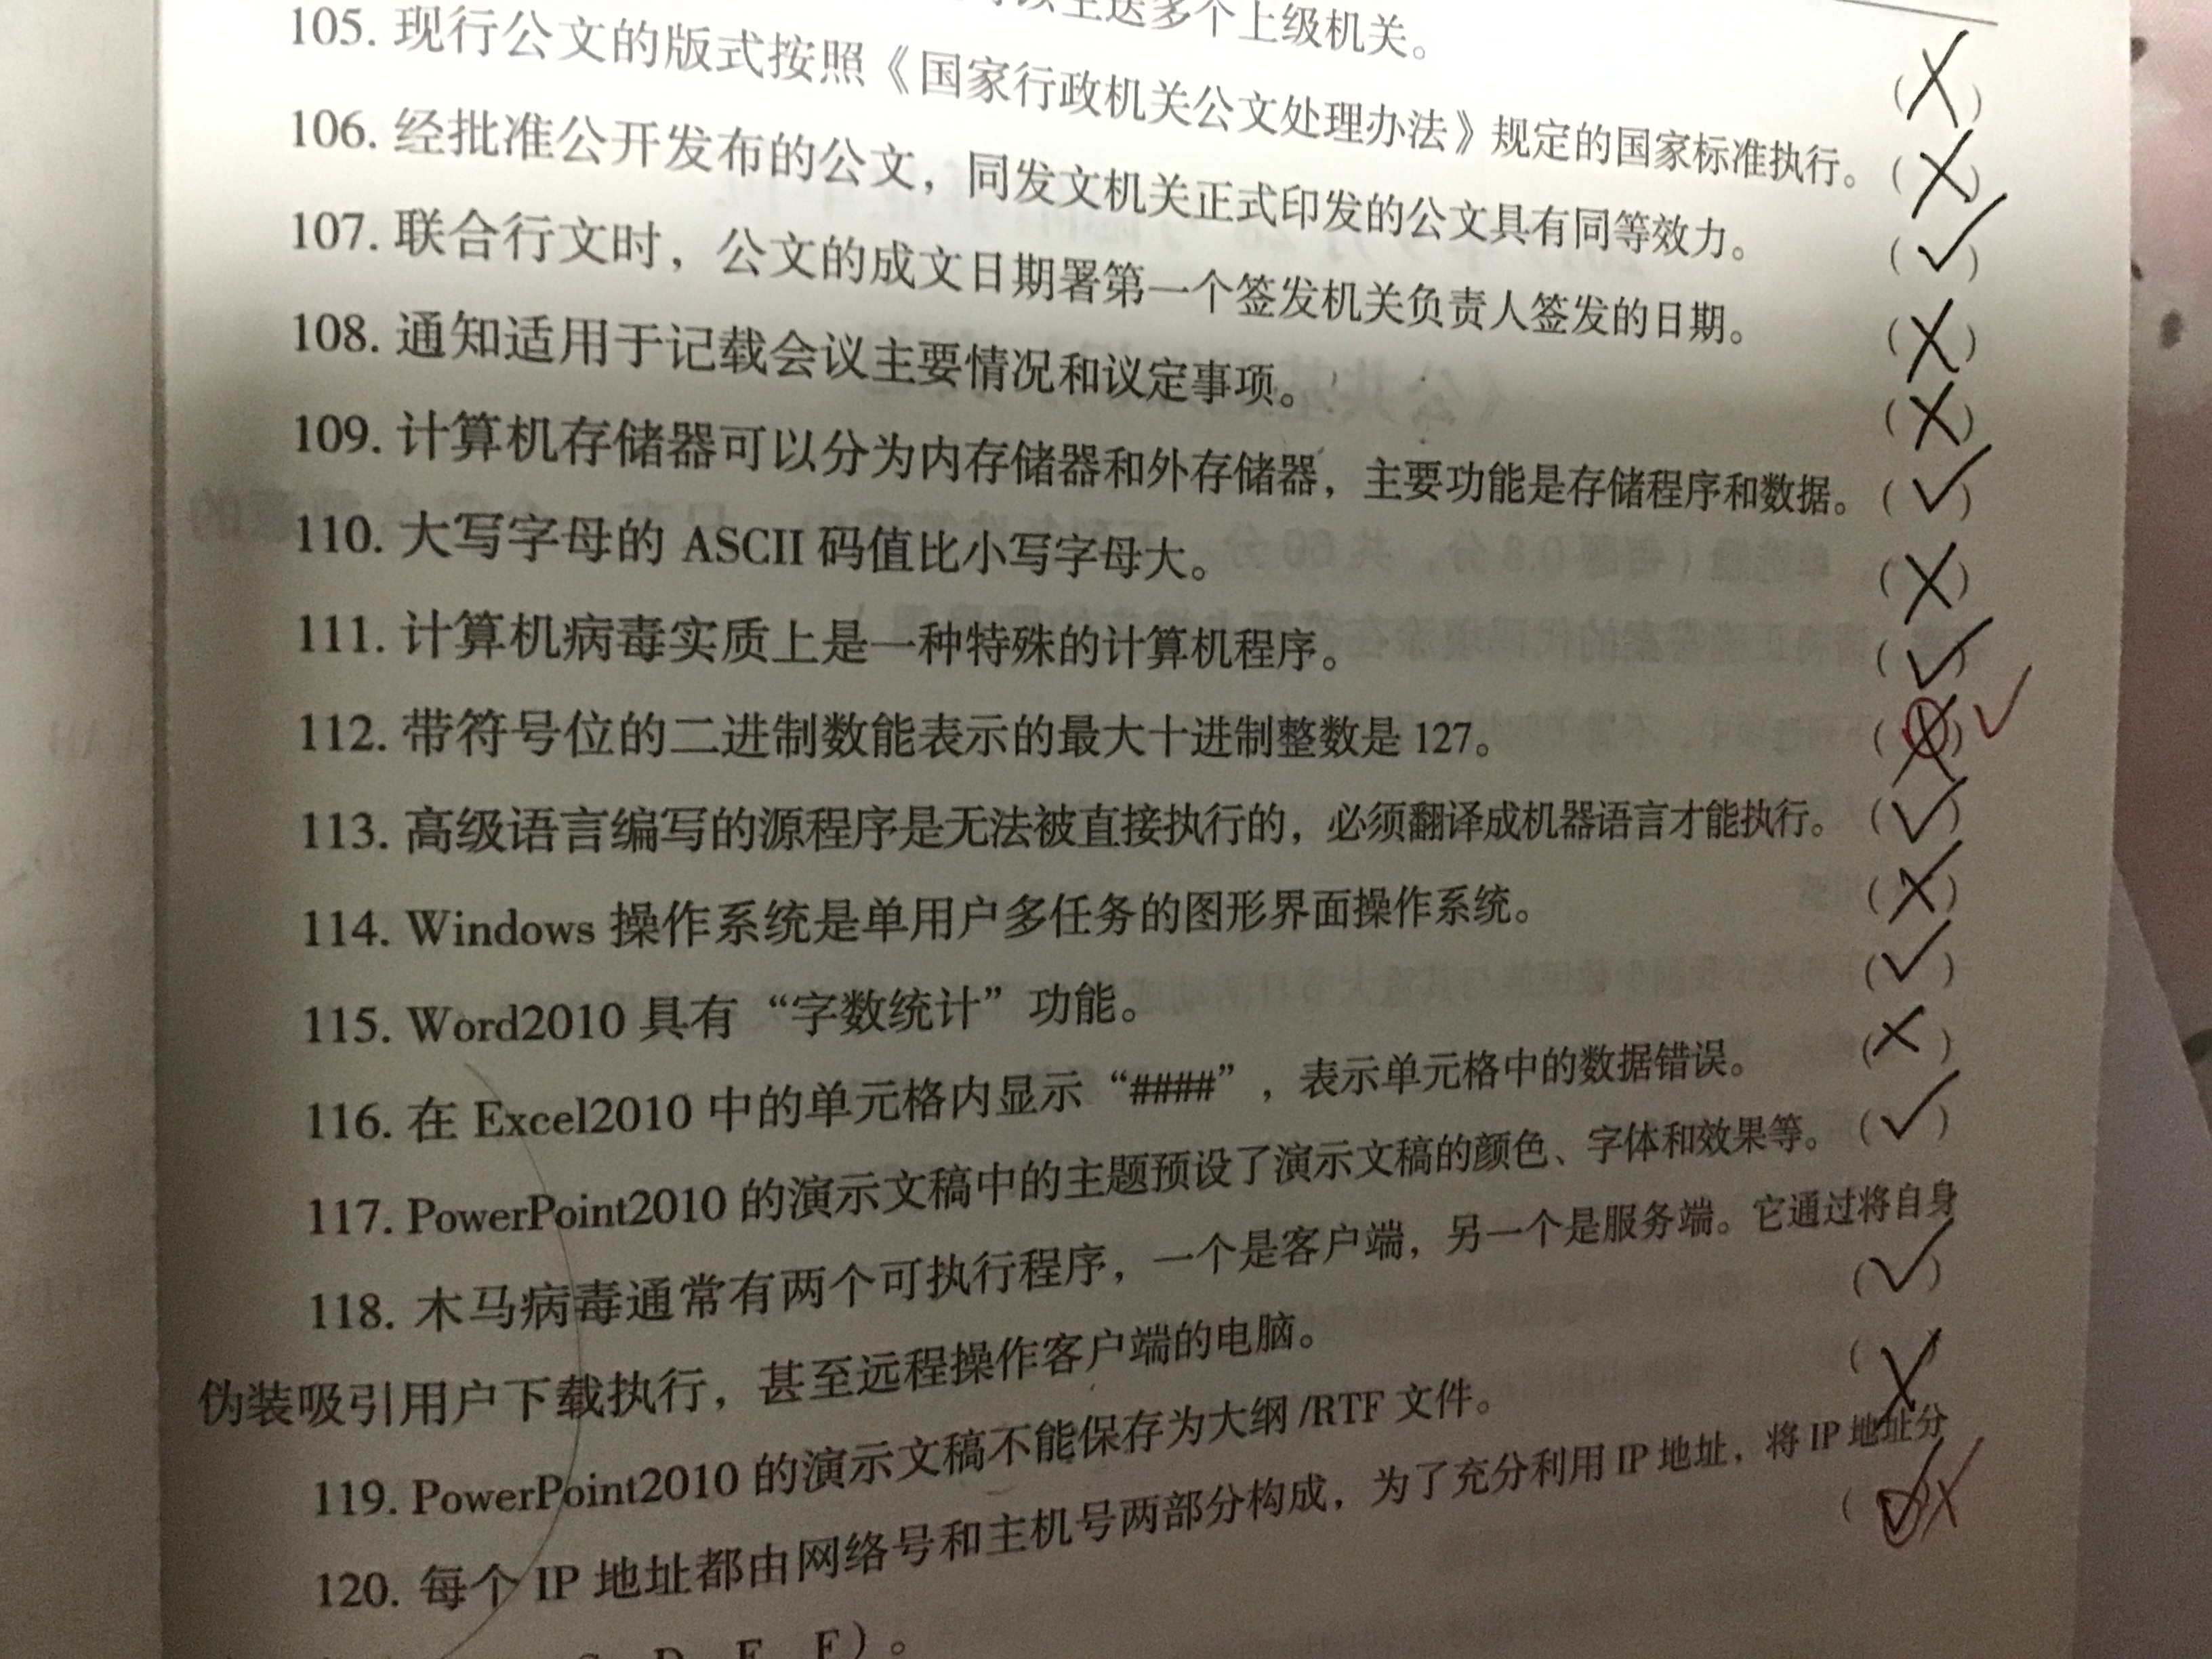 以主送多个上级机关。 (X)
105. 现行公文的版式按照《国家行政机关公文处理办法》规定的国家标准执行。 (X)
106. 经批准公开发布的公文，同发文机关正式印发的公文具有同等效力。 (✓)
107. 联合行文时，公文的成文日期署第一个签发机关负责人签发的日期。 (X)
108. 通知适用于记载会议主要情况和议定事项。 (X)
109. 计算机存储器可以分为内存储器和外存储器，主要功能是存储程序和数据。 (✓)
110. 大写字母的 ASCII 码值比小写字母大。 (X)
111. 计算机病毒实质上是一种特殊的计算机程序。 (✓)
112. 带符号位的二进制数能表示的最大十进制整数是 127。 (X) ✓
113. 高级语言编写的源程序是无法被直接执行的，必须翻译成机器语言才能执行。 (✓)
114. Windows 操作系统是单用户多任务的图形界面操作系统。 (X)
115. Word2010 具有“字数统计”功能。 (✓)
116. 在 Excel2010 中的单元格内显示“####”，表示单元格中的数据错误。 (X)
117. PowerPoint2010 的演示文稿中的主题预设了演示文稿的颜色、字体和效果等。 (✓)
118. 木马病毒通常有两个可执行程序，一个是客户端，另一个是服务端。它通过将自身
伪装吸引用户下载执行，甚至远程操作客户端的电脑。 (✓)
119. PowerPoint2010 的演示文稿不能保存为大纲/RTF 文件。 (X)
120. 每个 IP 地址都由网络号和主机号两部分构成，为了充分利用 IP 地址，将 IP 地址分
D、E、F）。 (✓) X